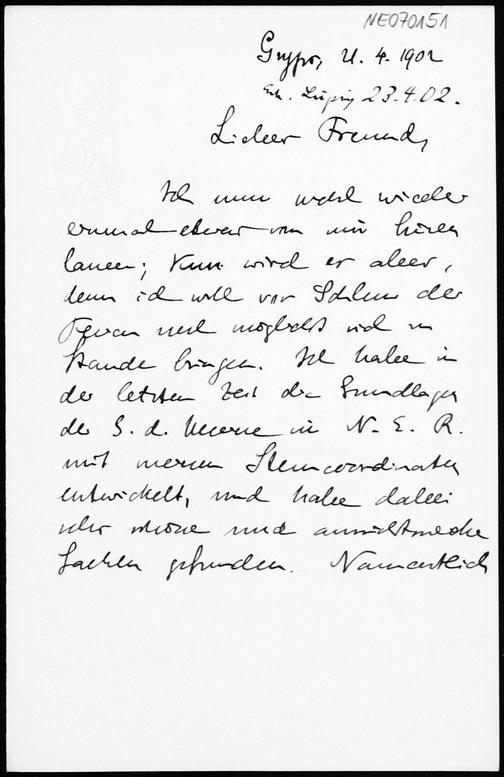 NE070151
Grypsw, 21. 4. 1902
Erh. Leipzig 23.4.02.
Lieber Freund,
Ich muss wohl wieder
einmal etwas von mir hören
lassen; kurz wird es aber,
denn ich will vor Schluss der
Ferien noch möglichst viel zu
Stande bringen. Ich habe in
der letzten Zeit die Grundlagen
der G. d. Kreise in N. E. R.
mit meinen Stabcoordinaten
entwickelt, und habe dabei
sehr schöne und aussichtsreiche
Sachen gefunden. Namentlich